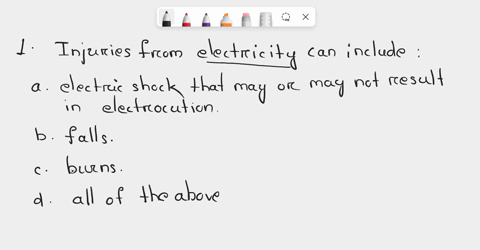 1. Injuries from electricity can include :
a. electric shock that may or may not result
in electrocution.
b. falls.
c. burns.
d. all of the above